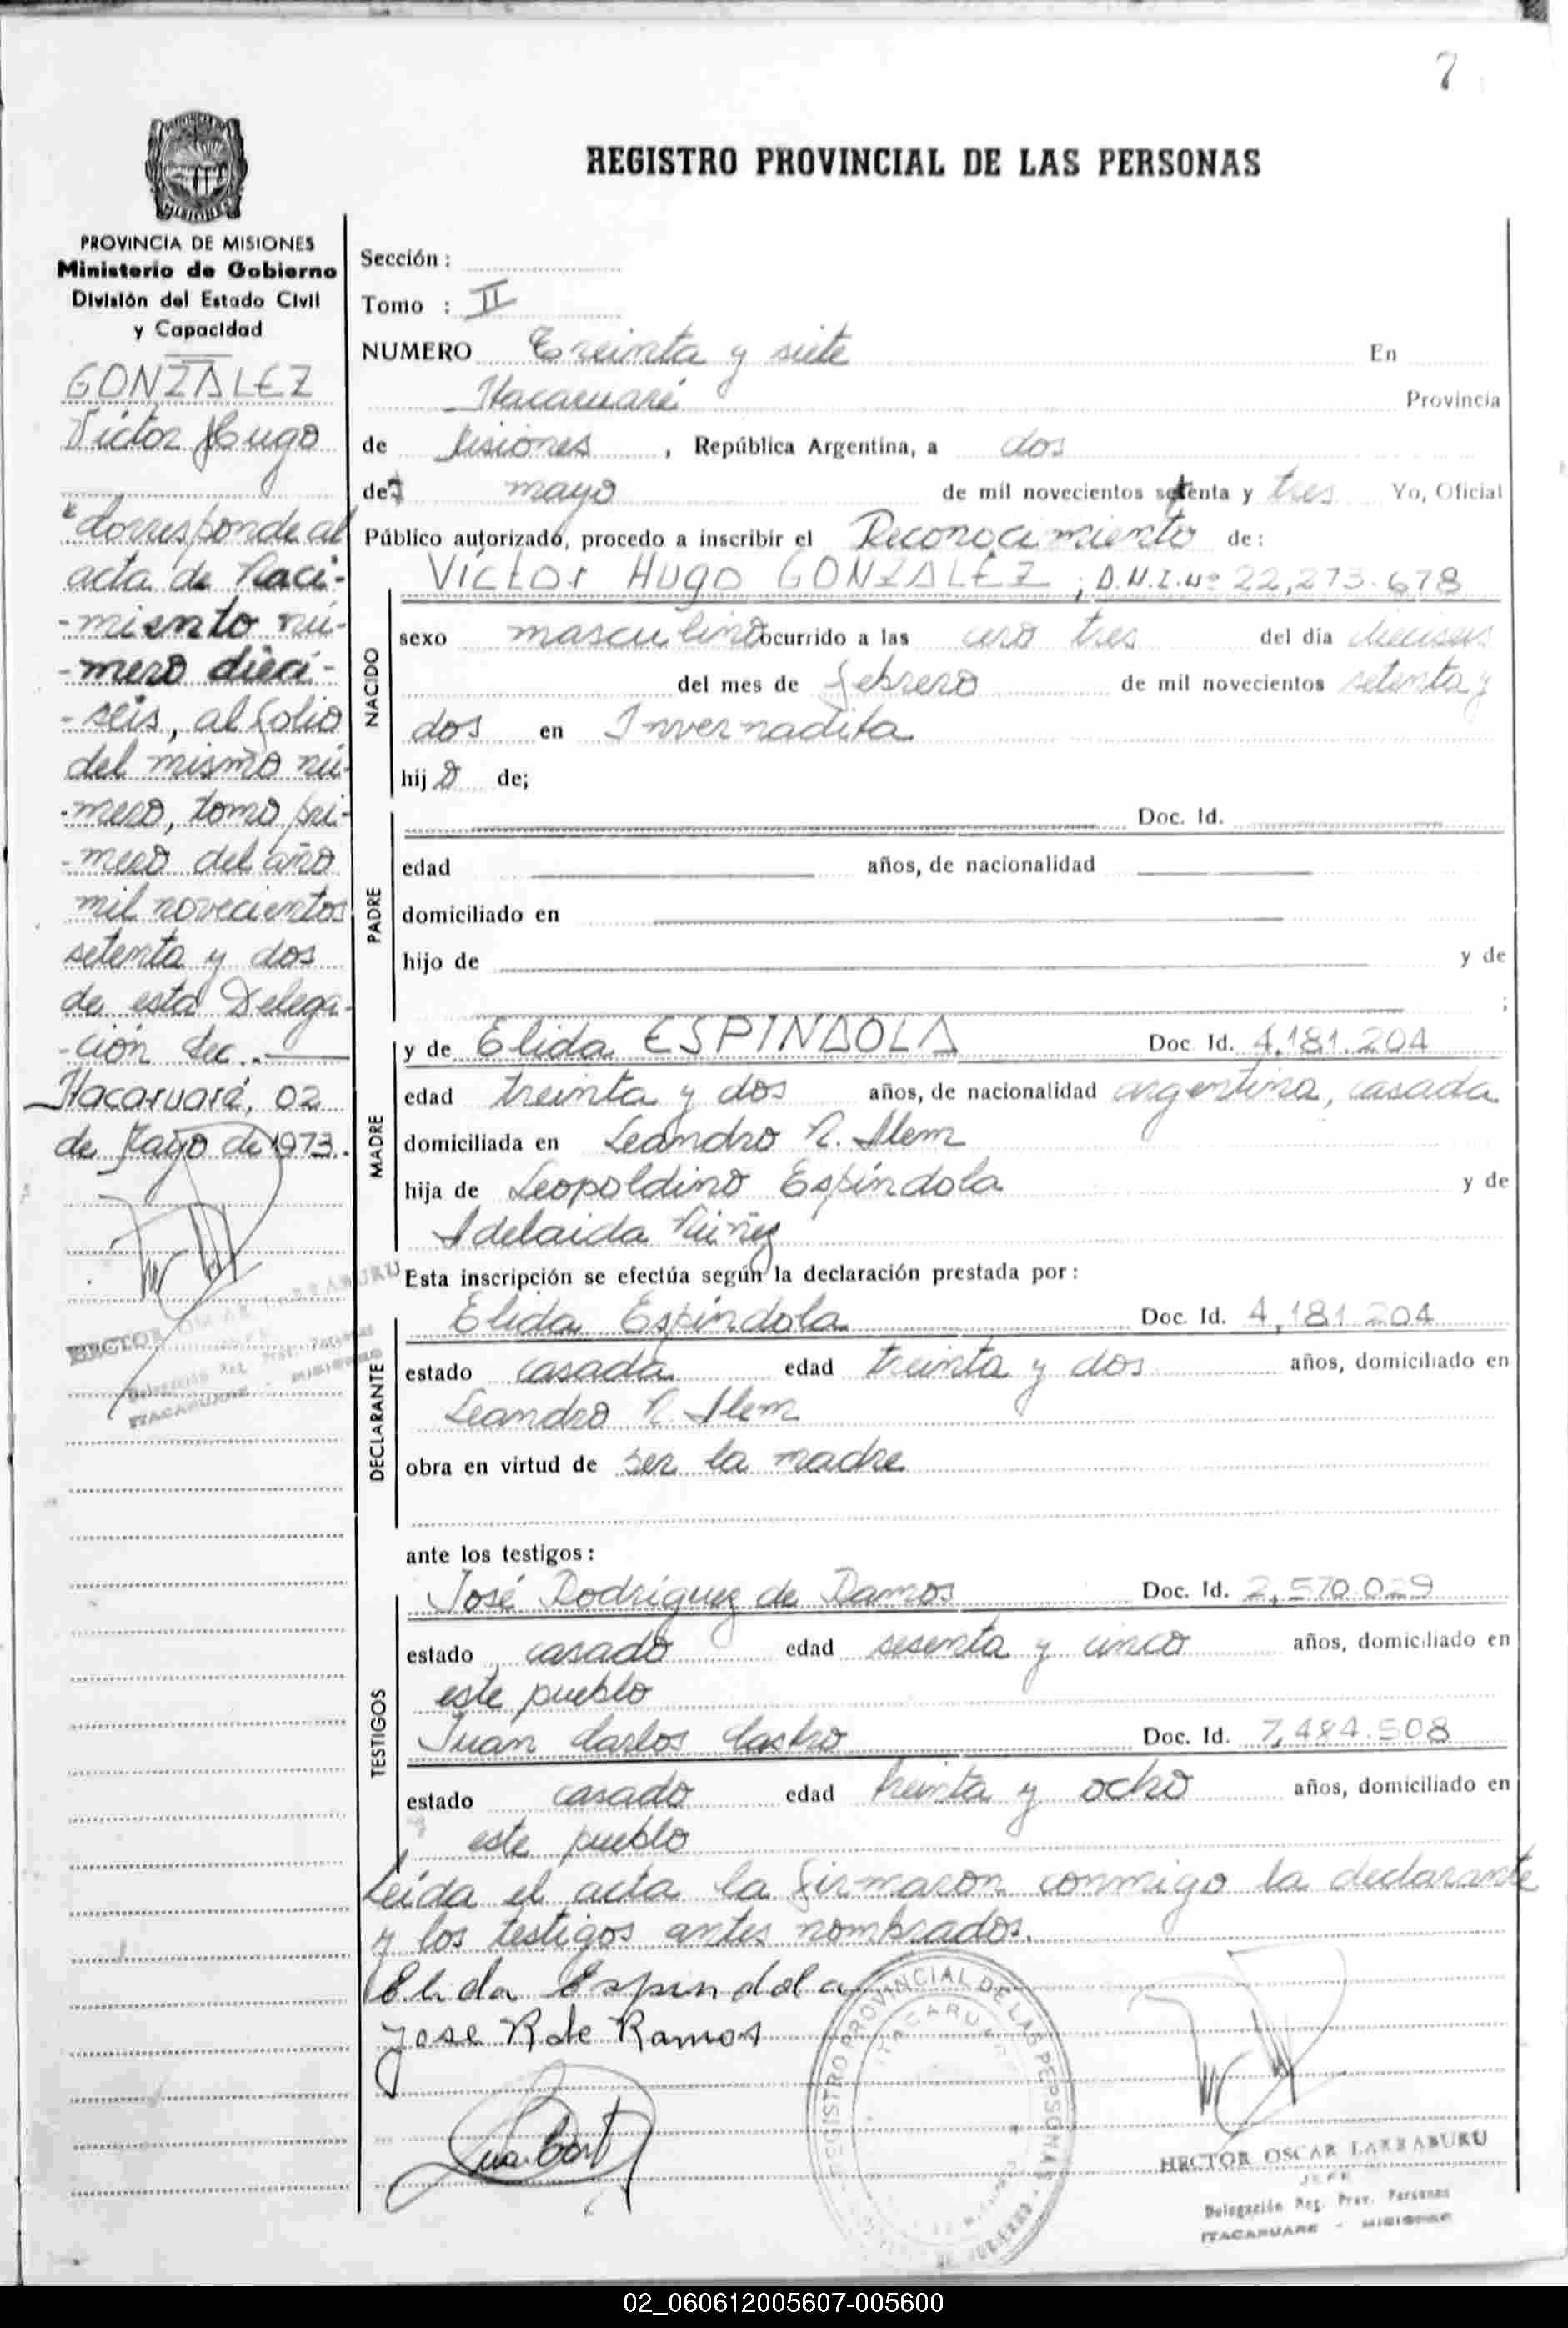 7
REGISTRO PROVINCIAL DE LAS PERSONAS
MISIONES
PROVINCIA DE MISIONES
Ministerio de Gobierno
División del Estado Civil
y Capacidad
GONZALEZ
Victor Hugo
Corresponde al
acta de Naci-
-miento nú-
-mero dieci-
-seis, al folio
del mismo nú-
-mero, tomo pri-
-mero del año
mil novecientos
setenta y dos
de esta Delega-
-ción Sec.
Itacaruaré, 02
de Mayo de 1973.
HECTOR OSCAR LARRABURU
JEFE
Delegación Reg. Prov. Personas
ITACARUARE - MISIONES
Sección :
Tomo : II
NUMERO Treinta y siete En
Itacaruaré Provincia
de Misiones , República Argentina, a dos
de mayo de mil novecientos setenta y tres Yo, Oficial
Público autorizado, procedo a inscribir el Reconocimiento de :
NACIDO
Víctor Hugo GONZALEZ ; D.N.I. Nº 22,273.678
sexo masculino ocurrido a las cero tres del día dieciseis
del mes de febrero de mil novecientos setenta y
dos en Invernadita
hijo de;
PADRE
Doc. Id.
edad años, de nacionalidad
domiciliado en
hijo de y de
;
MADRE
y de Elida ESPINDOLA Doc. Id. 4,181.204
edad treinta y dos años, de nacionalidad argentina, casada
domiciliada en Leandro N. Alem
hija de Leopoldino Espíndola y de
Adelaida Núñez
Esta inscripción se efectúa según la declaración prestada por :
DECLARANTE
Elida Espíndola Doc. Id. 4,181.204
estado casada edad treinta y dos años, domiciliado en
Leandro N. Alem
obra en virtud de ser la madre
ante los testigos :
TESTIGOS
José Rodríguez de Ramos Doc. Id. 2,570.029
estado casado edad sesenta y cinco años, domiciliado en
este pueblo
Juan Carlos Castro Doc. Id. 7,484.508
estado casado edad treinta y ocho años, domiciliado en
este pueblo
Leída el acta la firmaron conmigo la declarante
y los testigos antes nombrados.
Elida Espindola
Jose R de Ramos
REGISTRO PROVINCIAL DE LAS PERSONAS
HECTOR OSCAR LARRABURU
JEFE
Delegación Reg. Prov. Personas
ITACARUARE - MISIONES
02_060612005607-005600